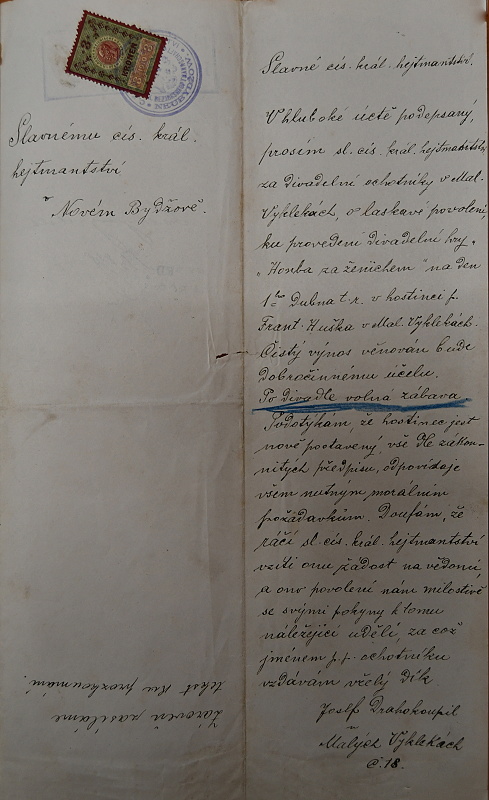 Slavnému cís. král.
hejtmantství
v
Novém Bydžově.
Zároveň zasíláme
tekst ku prozkoumání.
Slavné cís. král. hejtmantství.
V hluboké úctě podepsaný,
prosím sl. cís. král. hejtmantství
za divadelní ochotníky v Mal.
Vyklekách, o laskavé povolení,
ku provedení divadelní hry
„Honba za ženichem" na den
1ho Dubna t. r. v hostinci p.
Frant. Huška v Mal. Vyklekách.
Čistý výnos věnován bude
dobročinnému účelu.
Po divadle volná zábava.
Podotýkám, že hostinec jest
nově postavený, vše dle zákon-
nitých předpisu, odpovídaje
všem nutným morálním
požádavkům. Doufám, že
ráčí sl. cís. král. hejtmantství
vzíti onu žádost na vědomí,
a ono povolení nám milostivě
se svými pokyny k tomu
náležející udělí, za což
jménem p. p. ochotníku
vzdávám vřelý dík
Josef Drahokoupil
Malých Vyklekách
č. 18.